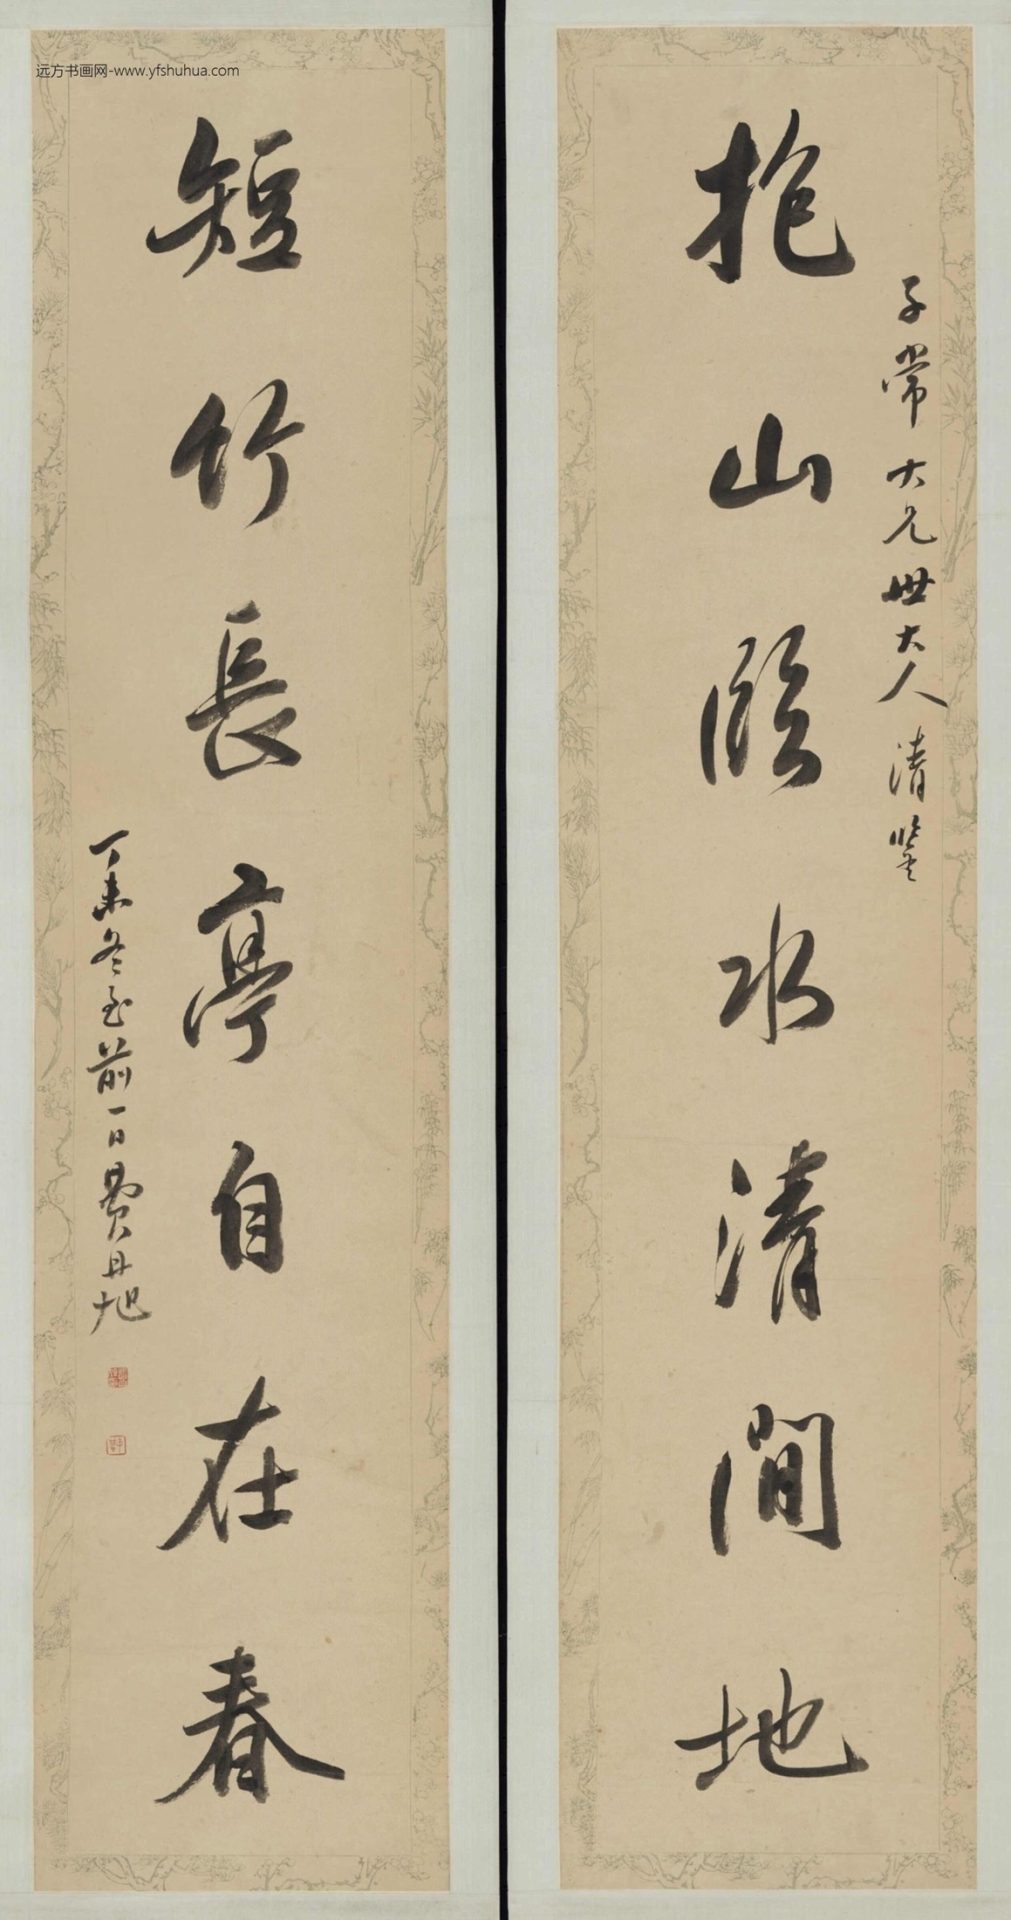 远方书画网-www.yfshuhua.com
子常大兄世大人清鉴
抱山臨水清閒地
短竹長亭自在春
丁未冬至前一日費丹旭